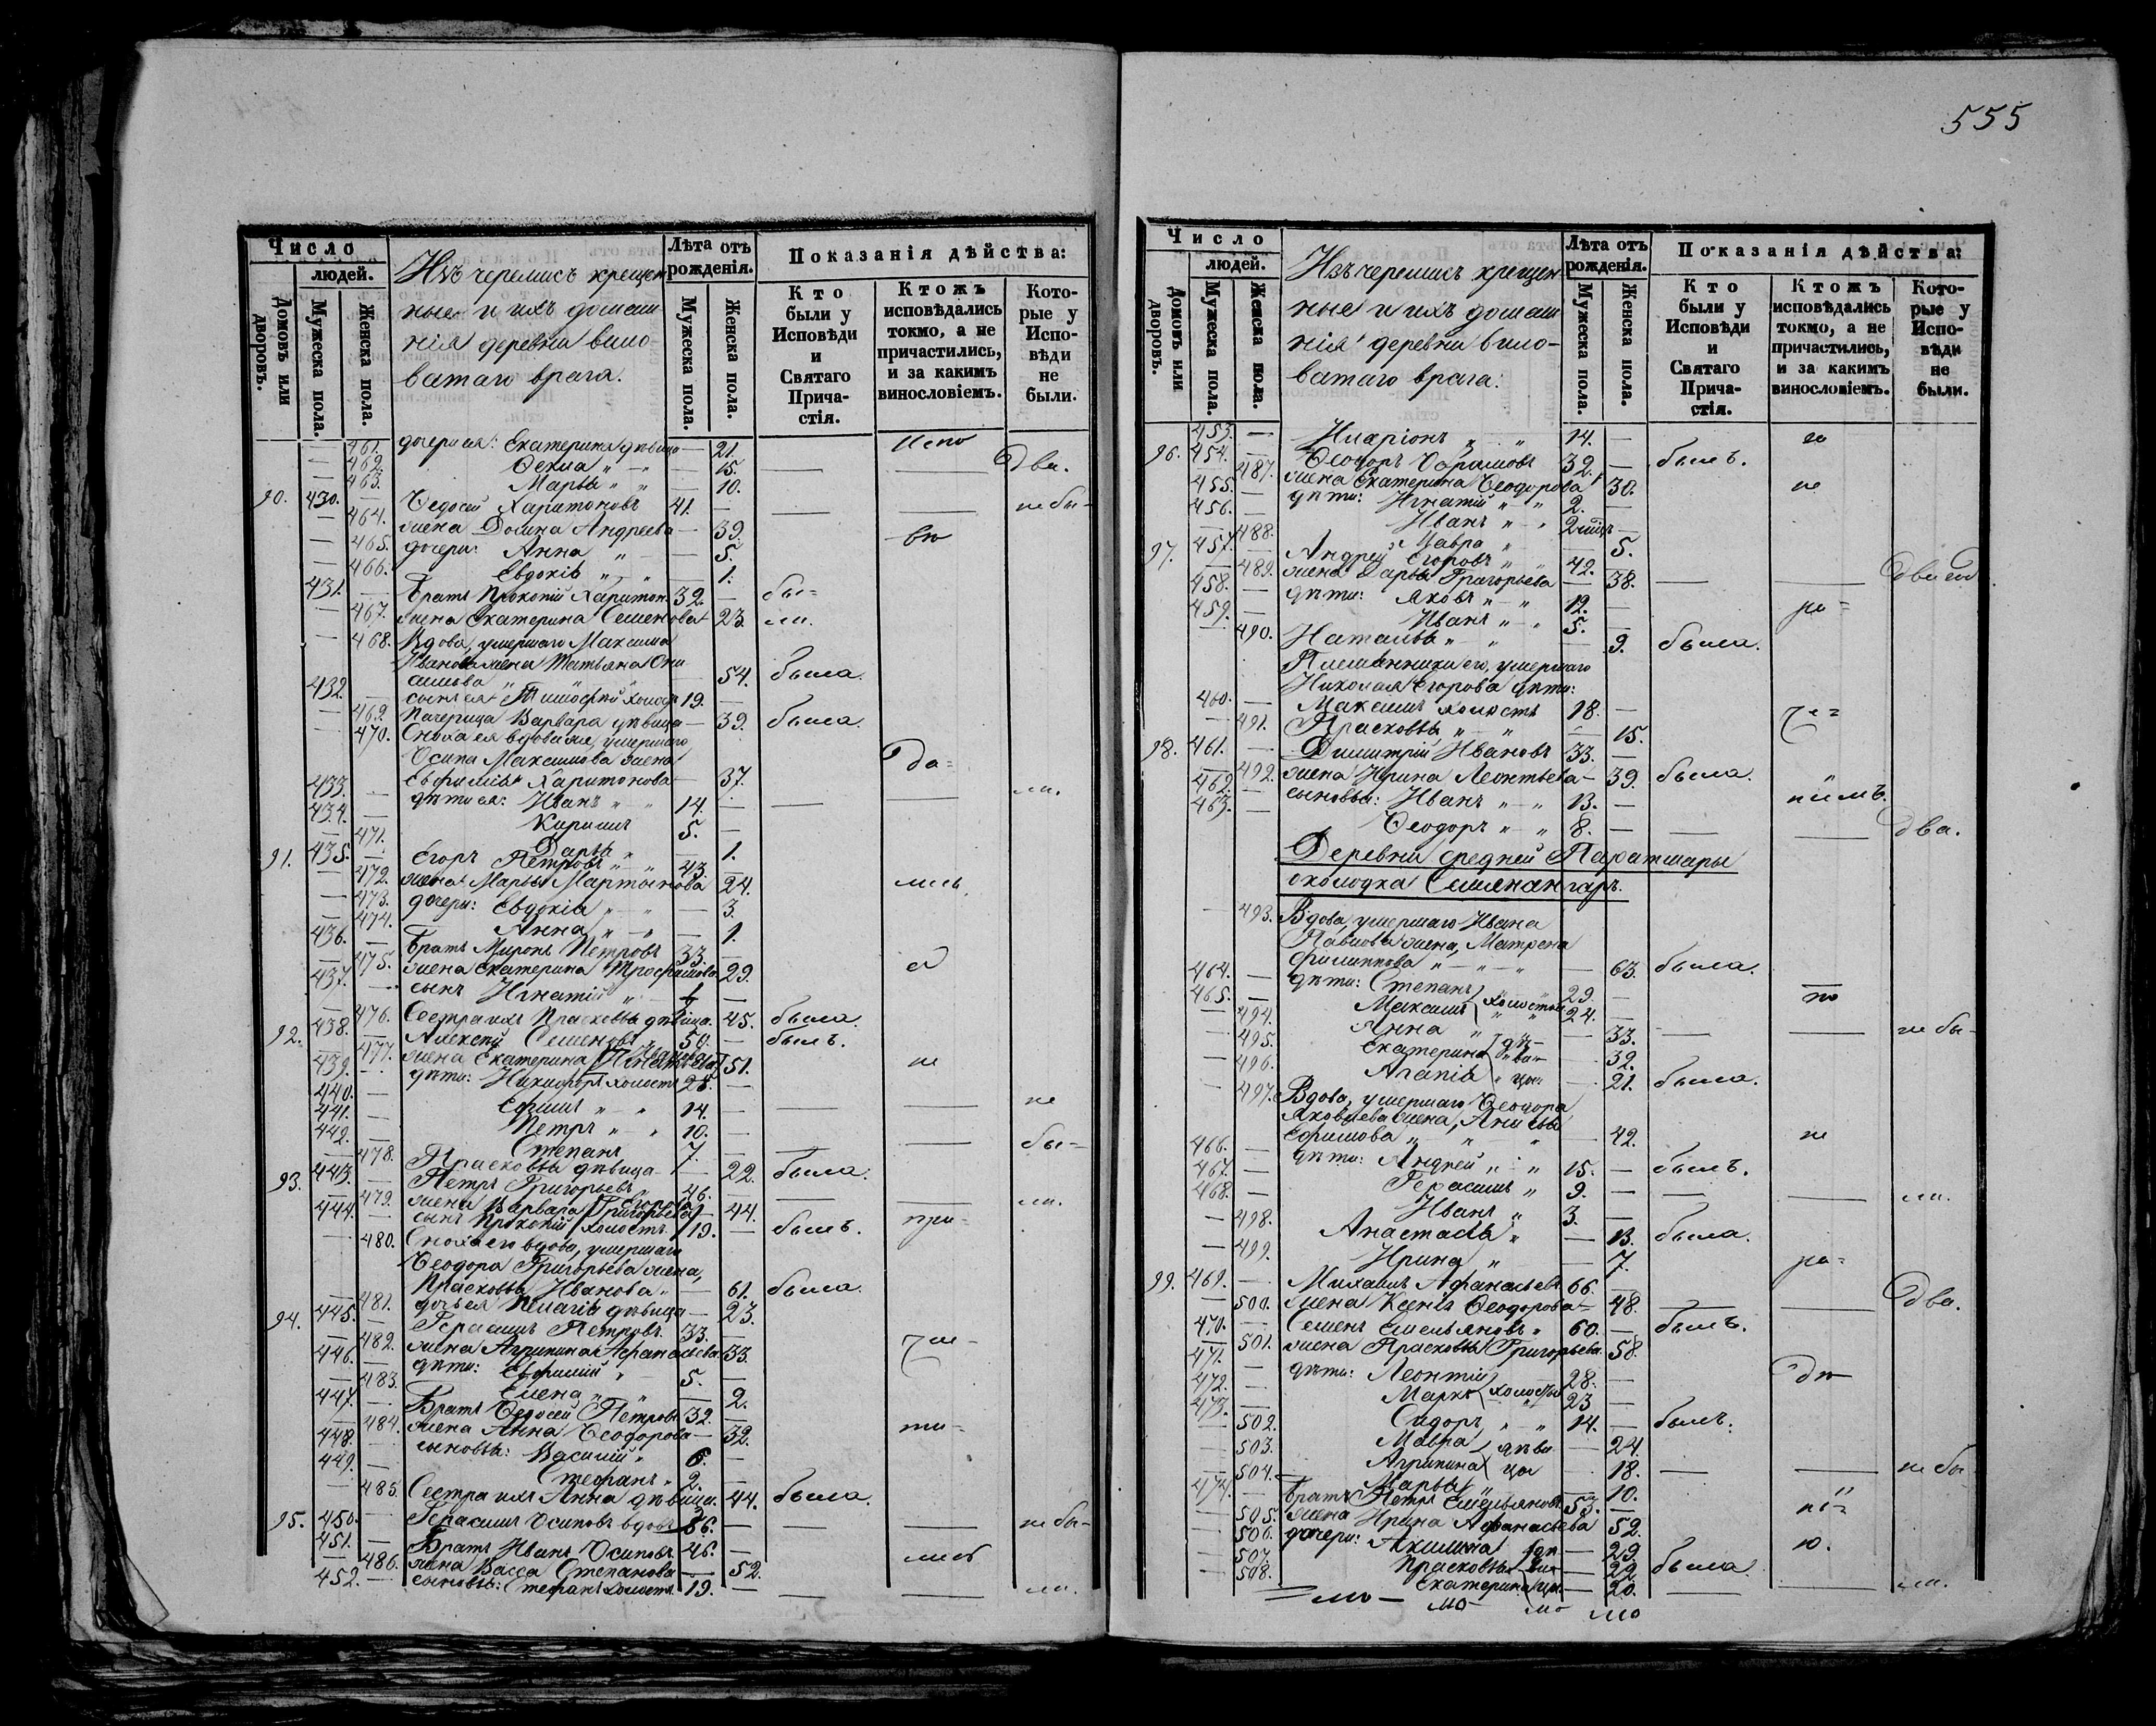 555
Число
людей.
Домовъ или дворовъ.
Мужеска пола.
Женска пола.
Изъ черемисъ крещен
ные и ихъ домаш
нія деревни Вило
ватаго врага.
Лѣта отъ рожденія.
Мужеска пола.
Женска пола.
Показанія дѣйства:
Кто были у Исповѣди и Святаго Причастія.
Ктожъ исповѣдались токмо, а не причастились, и за какимъ винословіемъ.
Которые у Исповѣди не были.
461. дочери ея: Екатерина дѣвица — 21. Испо
462. Фекла " — " — 15. — — Два.
463. Марья " " — 10.
90. 430. — Ѳедосей Харитоновъ 41. — — — не бы-
— 464. жена Домна Андреева — 39.
— 465. дочери: Анна " — 5. вѣ
— 466. Евдокія " — " — 1.
431. — Братъ Прокопій Харитон. 32. — бы=
— 467. жена Екатерина Семенова 23. ли.
— 468. Вдова, умершаго Максима
Иванова жена Татьяна Они
симова 54. была.
432. — сынъ ея Тимофей холост 19. —
— 469. Падчерица Варвара дѣвица — 39. была.
— 470. Сноха ея вдова же, умершаго
Осипа Максимова жена
Евфимія Харитонова — 37. да=
433. — дѣти ея: Иванъ " " 14. — — — ли.
434. — Кирилъ 5. —
— 471. Дарья " — 1.
91. 435. — Егоръ Петровъ " " 43. —
— 472. жена Марья Мартынова 24. лись
— 473. дочери: Евдокія " — " — 3.
— 474. Анна " — " — 1.
436. — Братъ Миронъ Петровъ 33. —
— 475. жена Екатерина Трофимова 29. а
437. — сынъ Игнатій " — 1/2 —
— 476. Сестра ихъ Прасковья дѣвица. 45. была.
92. 438. — Алексѣй Семеновъ 50. — былъ.
— 477. жена Екатерина Игнатьева 51. не
439. — дѣти: Никифоръ холостъ 25. —
440. — Ефимъ " — " 14. — — — не
441. — Петръ " — " 10. —
442. — Степанъ 7. — — — бы-
— 478. Прасковья дѣвица — 22. была.
93. 443. — Петръ Григорьевъ 46. — — — ли.
— 479. жена Варвара Григорьева — 44.
444. — сынъ Прокопій холостъ 19. — былъ. при-
— 480. Сноха его вдова, умершаго
Ѳеодора Григорьева жена,
Прасковья Иванова " — 61. была.
— 481. дочь ея Пелагія дѣвица — 23.
94. 445. — Герасимъ Петровъ 33. —
— 482. жена Агрипина Афанасьева 33. ча-
446. — дѣти: Евфимій " 5. —
— 483. Елена " " — 2.
447. — Братъ Ѳедосей Петровъ 32. —
— 484. жена Анна Ѳеодорова — 32. ти-
448. — сыновья: Василій " 6. —
449. — Стефанъ " 2. —
— 485. Сестра ихъ Анна дѣвица. 44. была.
95. 450. — Герасимъ Осиповъ вдовъ 56. — — — не бы-
451. — Братъ Иванъ Осиповъ 46. —
— 486. жена Васса Степанова — 52. лись
452. — сыновья: Стефанъ холостъ 19. — — — ли.
Число
людей.
Домовъ или дворовъ.
Мужеска пола.
Женска пола.
Изъ черемисъ крещен
ные и ихъ домаш
нія деревни Вило-
ватаго врага:
Лѣта отъ рожденія.
Мужеска пола.
Женска пола.
Показанія дѣйства:
Кто были у Исповѣди и Святаго Причастія.
Ктожъ исповѣдались токмо, а не причастились, и за какимъ винословіемъ.
Которые у Исповѣди не были.
453. — Иларіонъ " " 14. —
96. 454. — Ѳеодоръ Ефимовъ 32. — былъ.
— 487. жена Екатерина Ѳеодорова 30. не
455. — дѣти: Игнатій " — " 2. —
456. — Иванъ " — " —
— 488. Мавра " — 5.
97. 457. — Андрей Егоровъ " " 42. —
— 489. жена Дарья Григорьева — 38. — —
458. — дѣти: Яковъ " — " 12. — ра=
459. — Иванъ " — " 5. —
— 490. Наталья " — " 9. была.
Племянники его, умершаго
Николая Егорова дѣти:
460. — Максимъ холостъ 18. —
— 491. Прасковья " — " — 15.
98. 461. — Димитрій Ивановъ 33. —
— 492. жена Ирина Леонтьева — 39. была.
462. — сыновья: Иванъ " — " 13. —
463. — Ѳеодоръ " — " 8. — — — два.
Деревни средней Паратмары
околодка
— 493. Вдова, умершаго Ивана
Павлова жена, Матрена
Филиппова " — " — " — 63. была.
464. — дѣти: Степанъ 29. — по
465. — Максимъ холосты 24. —
— 494. Анна " — 33. — — не бы-
— 495. Екатерина дѣ- — 32.
— 496. Агапія ви- цы — 21. была.
— 497. Вдова, умершаго Ѳеодора
Яковлева жена, Анисья
Ефимова " " " — 42. не
466. — дѣти: Андрей " — " 15. — былъ.
467. — Герасимъ " 9. — — — ли.
468. — Иванъ " 3. —
— 498. Анастасья " — 13. была.
— 499. Ирина " — 7. ра=
99. 469. — Михаилъ Афанасьевъ 66. —
— 500. жена Ксенія Ѳеодорова — 48. — — Два.
470. — Семенъ Емельяновъ " 60. — былъ.
— 501. жена Прасковья Григорьева 58.
471. — дѣти: Леонтій 28. —
472. — Маркъ холосты 23 —
473. — Сидоръ " — " 14. — былъ.
— 502. Мавра дѣви — 24.
— 503. Агрипина цы — 18. — — не бы
— 504. Марья " — 10.
474. — Братъ Петръ Емельяновъ 53. —
— 505. жена Ирина Афанасьева 52.
— 506. дочери: Акилина дѣ — 29. ю.
— 507. Прасковья ви — 22. была
— 508. Екатерина цы — 20. — — ли.